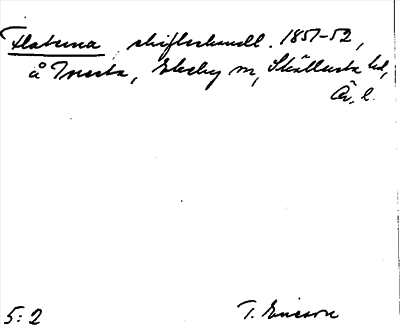 Flaterna, skifteshandl. 1851-52,
å Tresta, Ekeby sn, Skällersta hd,
Ör. l.
5:2 T. Ericson